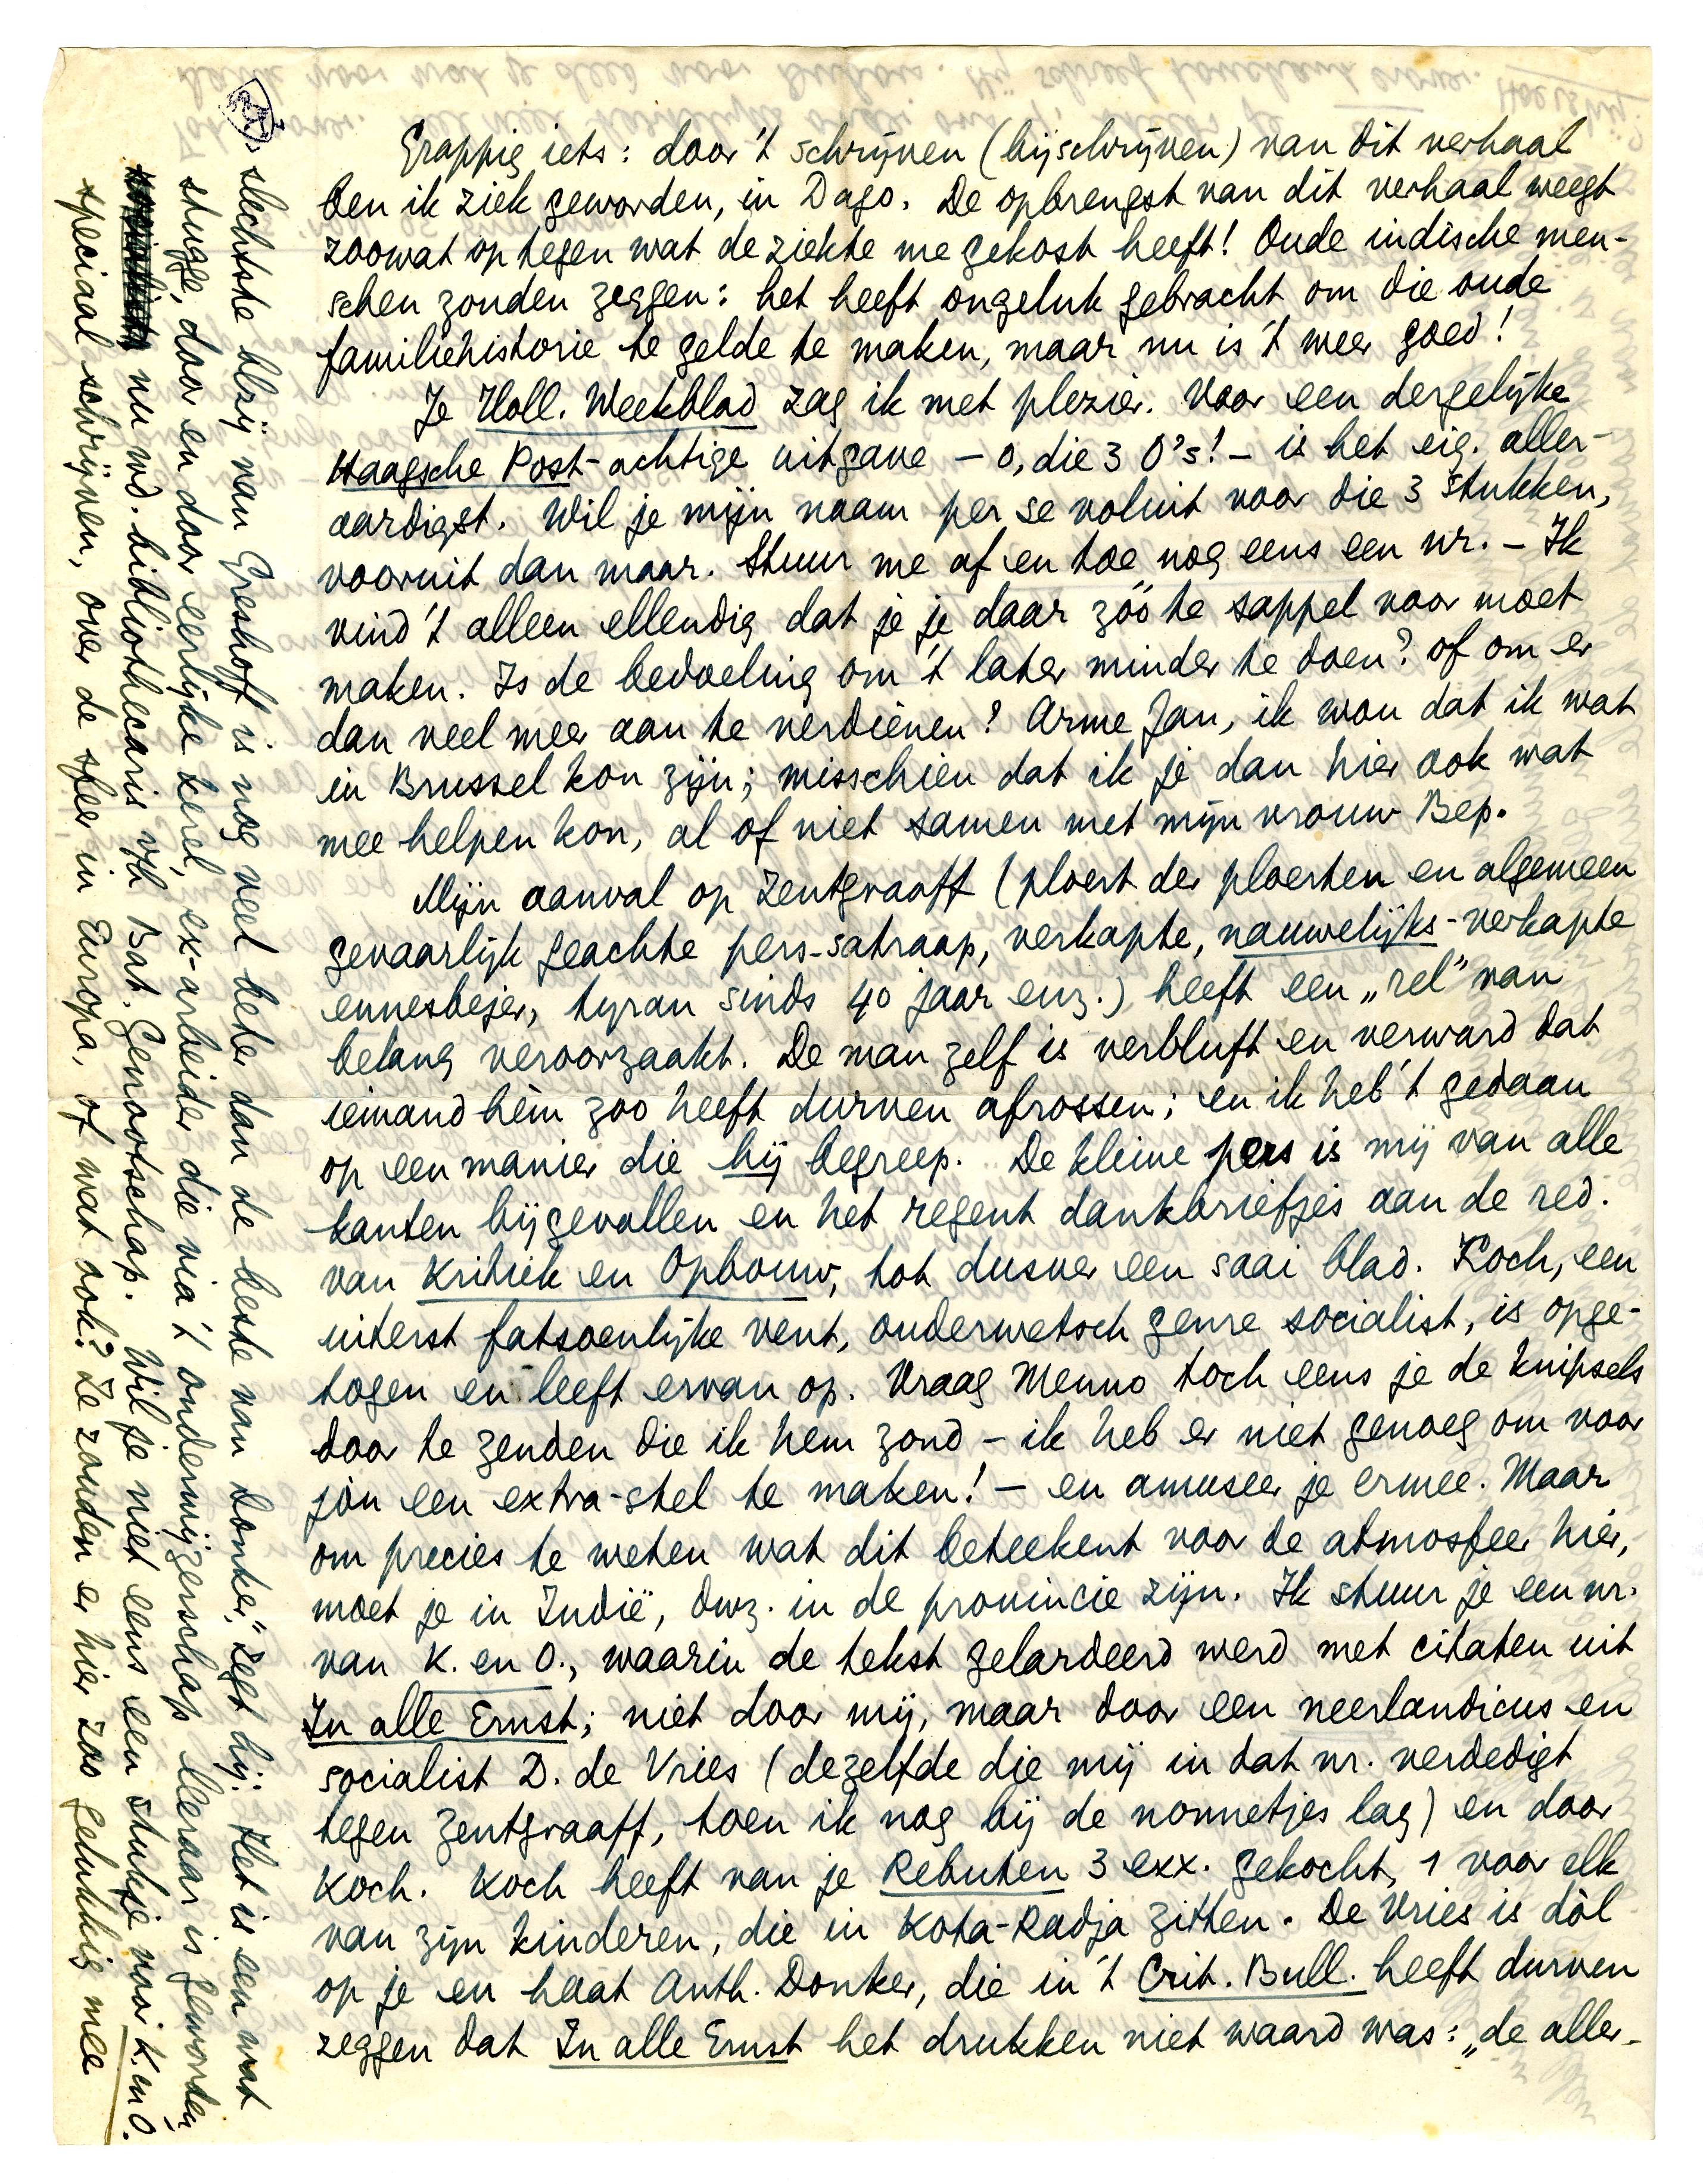 Grappig iets: door 't schrijven (bijschrijven) van dit verhaal
ben ik ziek geworden, in Dago. De opbrengst van dit verhaal weegt
zoowat op tegen wat de ziekte me gekost heeft! Oude indische men-
schen zouden zeggen: het heeft ongeluk gebracht om die oude
familiehistorie te gelde te maken, maar nu is 't weer goed!
Je Holl. Weekblad zag ik met plezier. Voor een dergelijke
Haagsche Post-achtige uitgave – o, die 3 O's! – is het eig. aller-
aardigst. Wil je mijn naam per se voluit voor die 3 stukken,
vooruit dan maar. Stuur me af en toe nog eens een nr. – Ik
vind 't alleen ellendig dat je je daar zóó te sappel voor moet
maken. Is de bedoeling om 't later minder te doen? of om er
dan veel meer aan te verdienen? Arme Jan, ik wou dat ik wat
in Brussel kon zijn; misschien dat ik je dan hier ook wat
mee helpen kon, al of niet samen met mijn vrouw Bep.
Mijn aanval op Zentgraaff (ploert der ploerten en algemeen
gevaarlijk geachte pers-satraap, verkapte, nauwelijks-verkapte
ennesbejer, tyran sinds 40 jaar enz.) heeft een „rel" van
belang veroorzaakt. De man zelf is verbluft en verward dat
iemand hèm zoo heeft durven afrossen; en ik heb 't gedaan
op een manier die hij begreep. De kleine pers is mij van alle
kanten bijgevallen en het regent dankbriefjes aan de red.
van Kritiek en Opbouw, tot dusver een saai blad. Koch, een
uiterst fatsoenlijke vent, ouderwetsch genre socialist, is opge-
togen en leeft ervan op. Vraag Menno toch eens je de knipsels
door te zenden die ik hem zond – ik heb er niet genoeg om voor
jòu een extra-stel te maken! – en amuseer je ermee. Maar
om precies te weten wat dit beteekent voor de atmosfeer hier,
moet je in Indië, dwz. in de provincie zijn. Ik stuur je een nr.
van K. en O., waarin de tekst gelardeerd werd met citaten uit
In alle Ernst; niet door mij, maar door een neerlandicus en
socialist D. de Vries (dezelfde die mij in dat nr. verdedigt
tegen Zentgraaff, toen ik nog bij de nonnetjes lag) en door
Koch. Koch heeft van je Rebuten 3 exx. gekocht, 1 voor elk
van zijn kinderen, die in Kota-Radja zitten. De Vries is dòl
op je en haat Anth. Donker, die in 't Crit. Bull. heeft durven
zeggen dat In alle Ernst het drukken niet waard was: „de aller-
slechtste blzij van Greshoff is nog veel beter dan de beste van Donker," zegt hij. Het is een wat
stugge, door en door eerlijke kerel, ex-arbeider die via 't onderwijzerschap leeraar is geworden,
nu wd. bibliothecaris v/h Bat. Genootschap. Wil je niet eens een stukje voor K. en O.
speciaal schrijven, over de sfeer in Europa, of wat ook? Ze zouden er hier zoo gelukkig mee